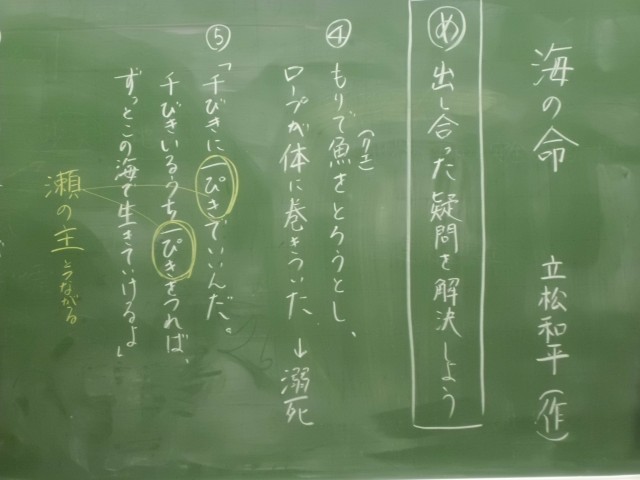 海の命 立松和平(作)
め 出し合った疑問を解決しよう
④ もりで魚をとろうとし、
ロープが体に巻きついた→溺死
⑤ 「千びきに一ぴきでいいんだ。
千びきいるうち一ぴきをつれば、
ずっとこの海で生きていけるよ」
瀬の主とつながる